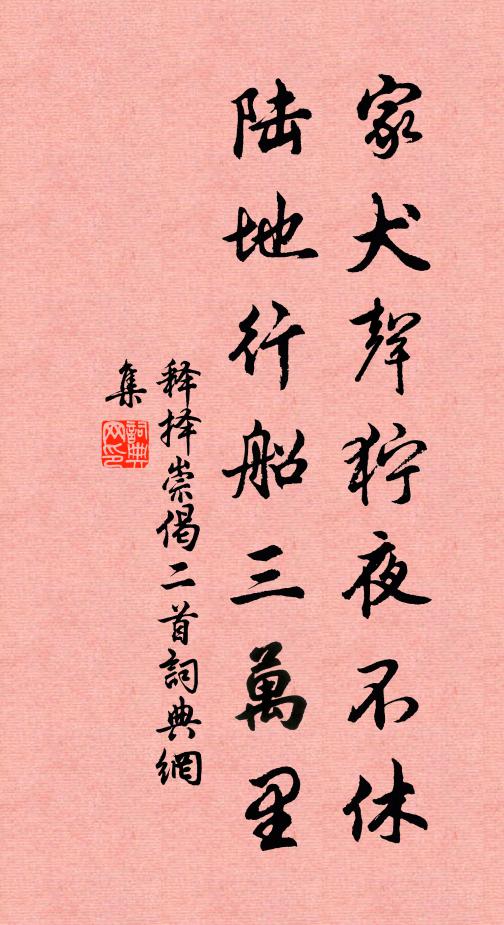 家犬聲狞夜不休
陆地行船三萬里
释择崇偈二首詞典網
集
詞典网印